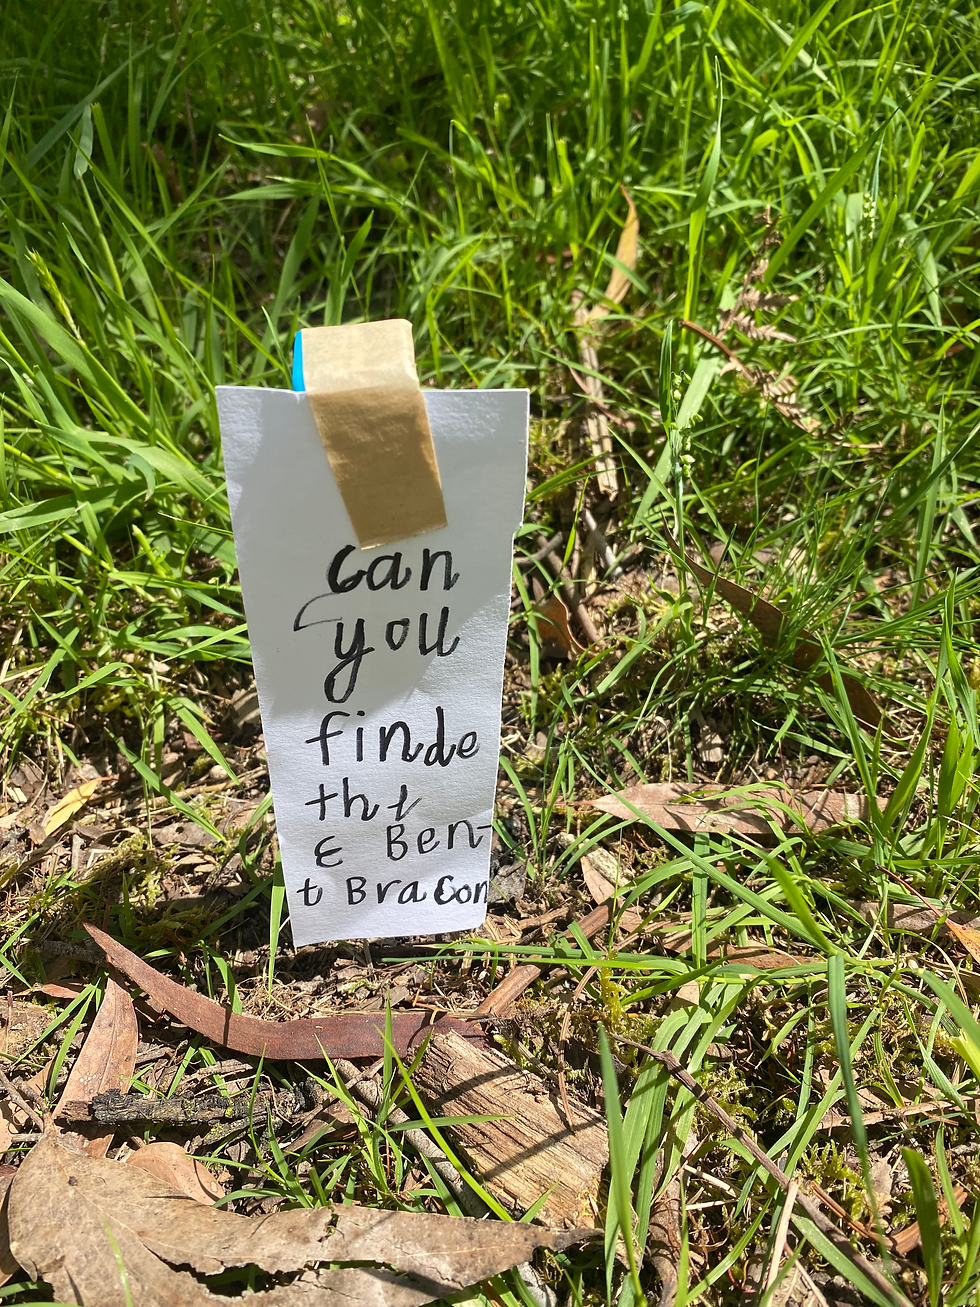 can
you
finde
tht
ε Ben-
t Bracon